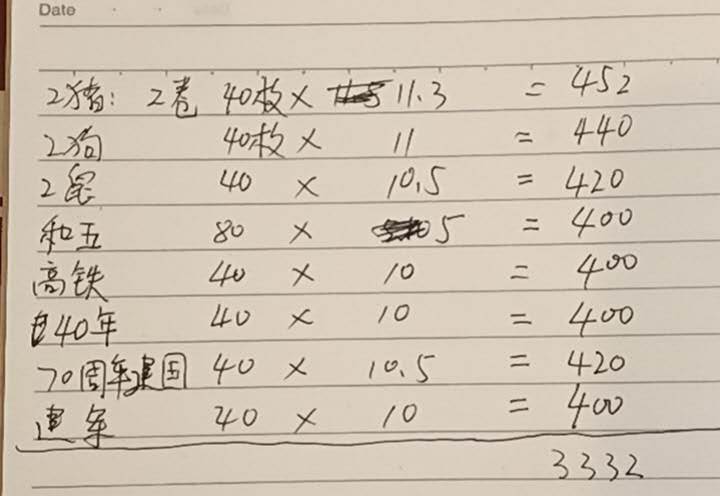 Date
2猪: 2卷 40枚 × 11.3 = 452
2狗 40枚 × 11 = 440
2鼠 40 × 10.5 = 420
和五 80 × 5 = 400
高铁 40 × 10 = 400
40年 40 × 10 = 400
70周年建国 40 × 10.5 = 420
建军 40 × 10 = 400
3332